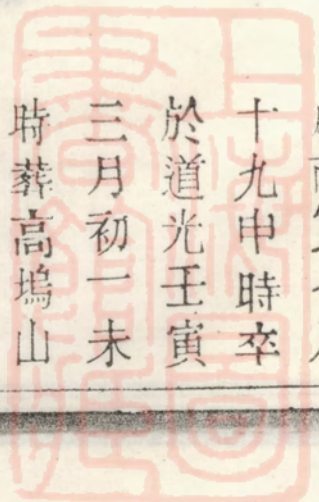 十九申時卒
於道光壬寅
三月初一未
時葬高塢山